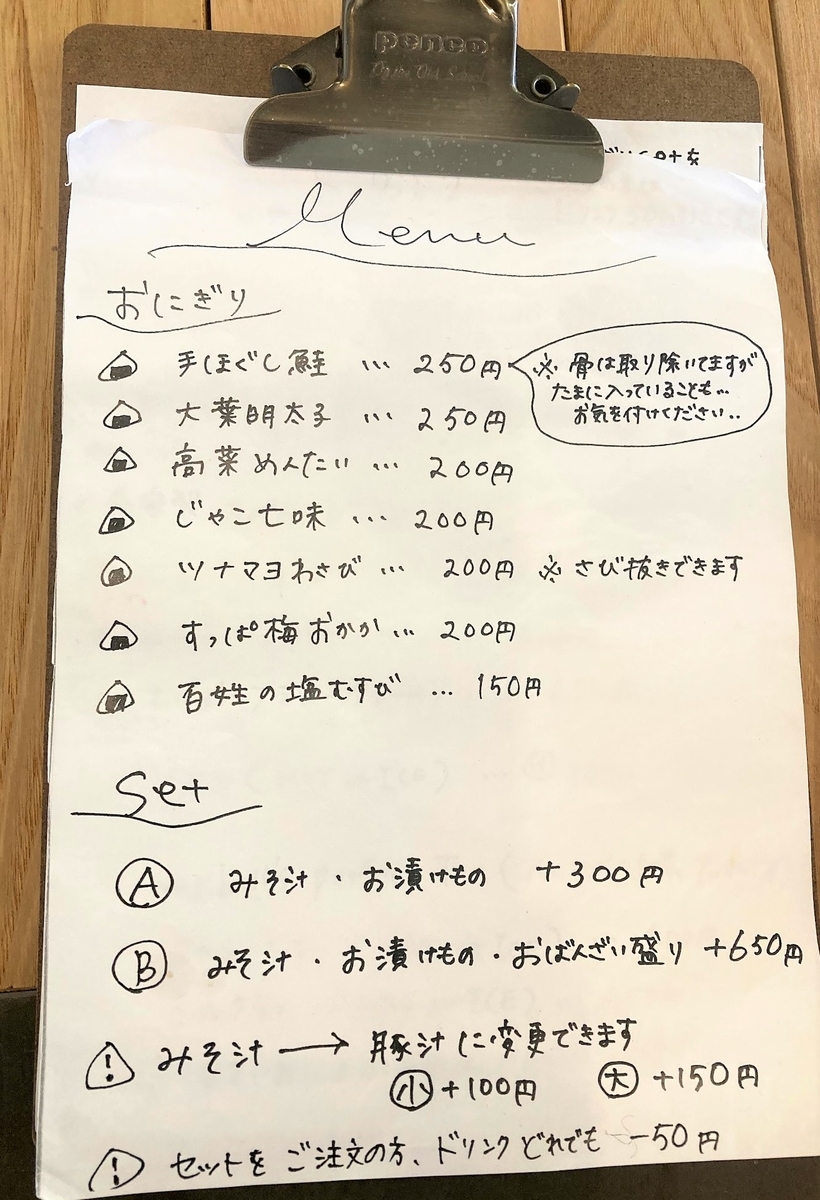 penco
Menu
おにぎり
手ほぐし鮭 … 250円
※骨は取り除いてますが
たまに入っていることも…
お気を付けください..
大葉明太子 … 250円
高菜めんたい … 200円
じゃこ七味 … 200円
ツナマヨわさび … 200円 ※さび抜きできます
すっぱ梅おかか … 200円
百姓の塩むすび … 150円
Set
Ⓐ みそ汁・お漬けもの +300円
Ⓑ みそ汁・お漬けもの・おばんざい盛り +650円
! みそ汁 → 豚汁に変更できます
㊙小 +100円 大 +150円
! セットをご注文の方、ドリンクどれでも -50円